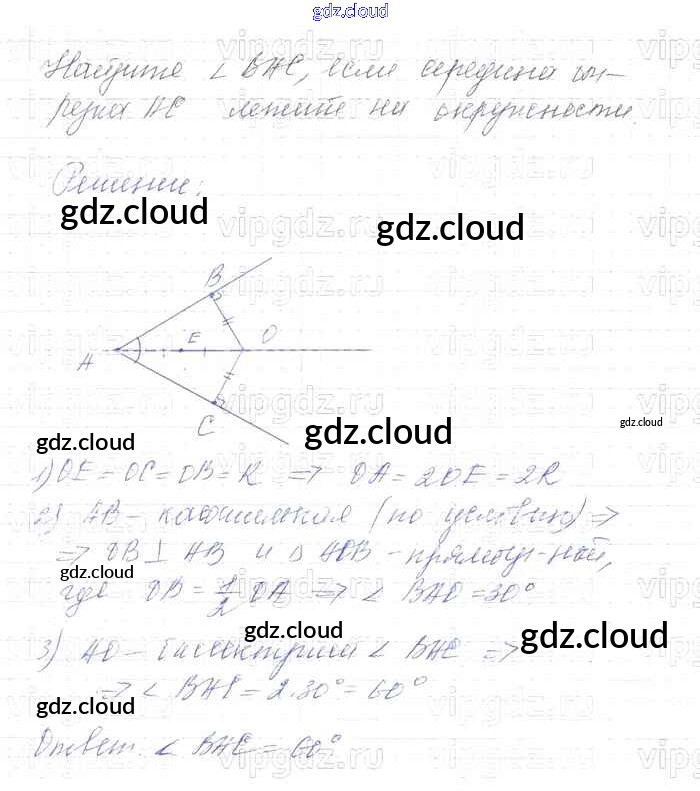 gdz.cloud
Найдите ∠ BAC, если середина от-
резка AC лежит на окружности.
Решение:
gdz.cloud
gdz.cloud
B
A
E
O
C
gdz.cloud
gdz.cloud
gdz.cloud
1) OE = OC = OB = R ⇒ OA = 2OE = 2R
2) AB – касательная (по условию) ⇒
⇒ OB ⊥ AB и Δ AOB – прямоуг-ный,
gdz.cloud
где OB = 1/2 OA ⇒ ∠ BAO = 30°
gdz.cloud
gdz.cloud
3) AO – биссектрисой ∠ BAC ⇒
⇒ ∠ BAC = 2·30° = 60°
gdz.cloud
Ответ: ∠ BAC = 60°